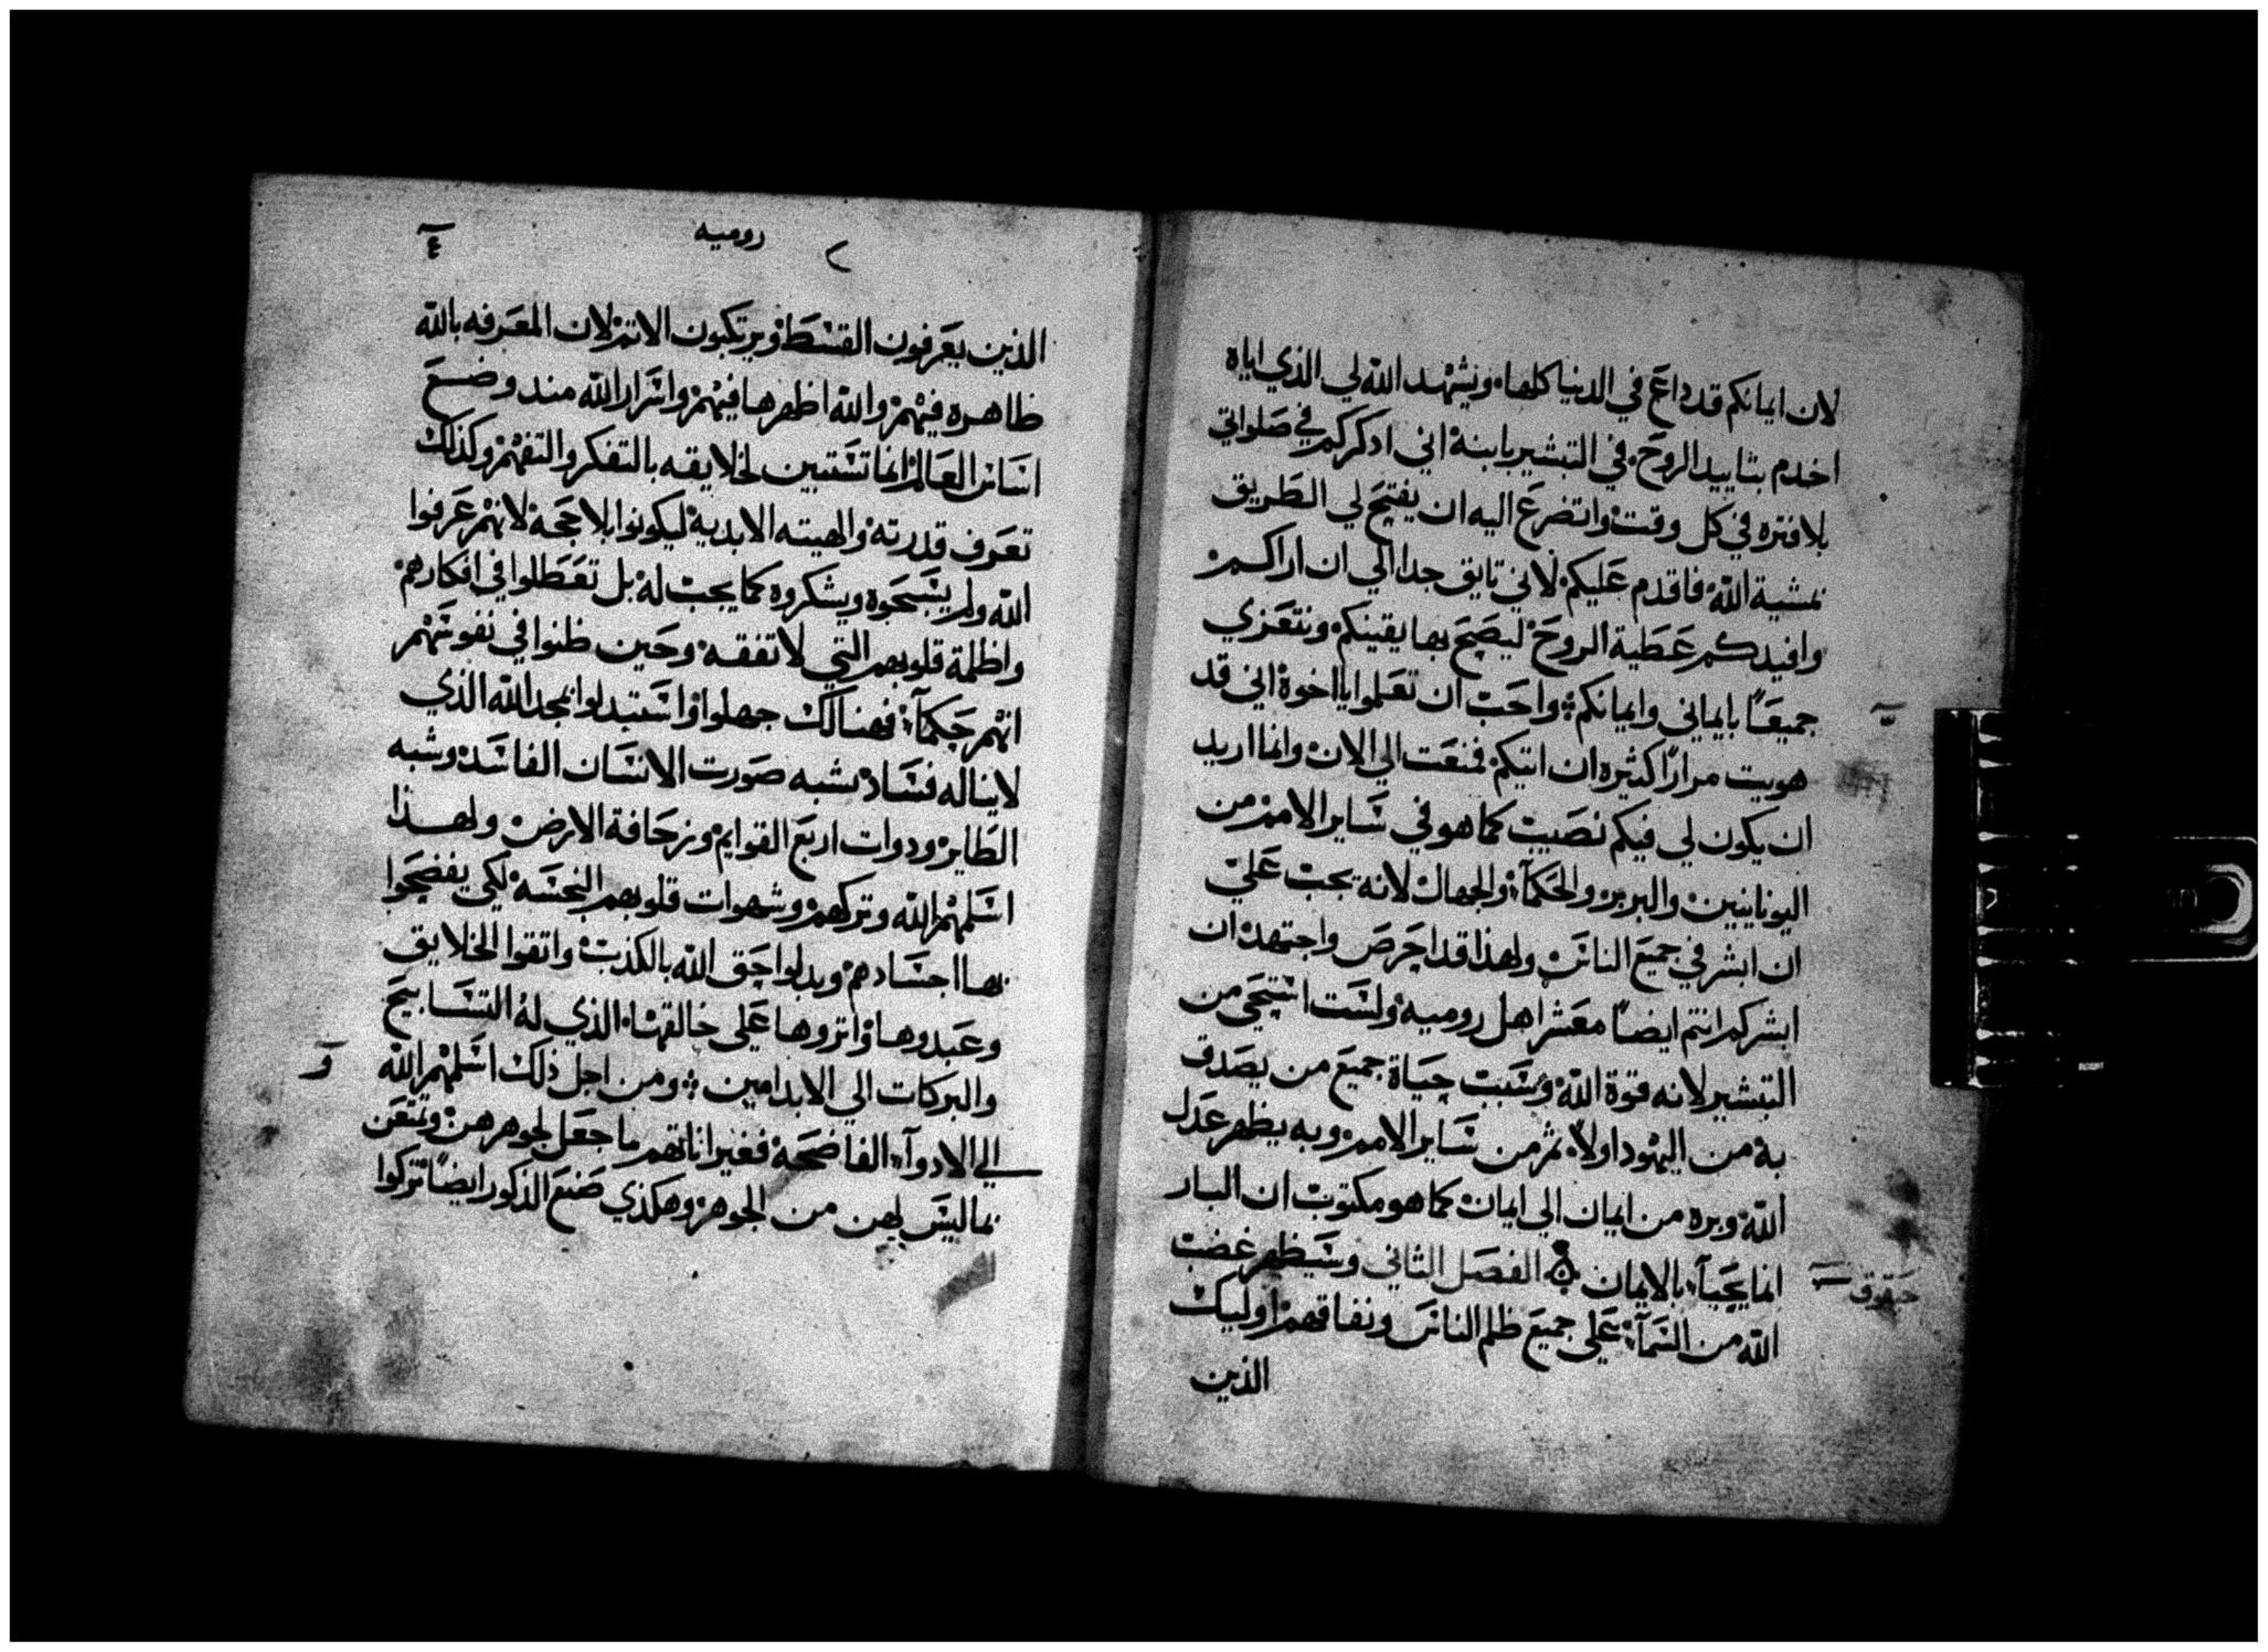 لان ايمانكم قد داع في الدنيا كلها. ويشهد الله لي الذي اياه
اخدم بتاييد الروح. في التبشير بابنه اني ادكركم في صلواتي
بلا فتره في كل وقت. واتضرع اليه ان يفتح لي الطريق
بمشية الله فاقدم عليكم لاني تايق جدا الي ان اراكم
وافيدكم عطية الروح ليصح بها يقينكم ونتعزي
جميعًا بايماني وايمانكم ❖ واحب ان تعلموا يا اخوة اني قد
هويت مرارًا كثيره ان اتيكم فمنعت الي الان وانما اريد
ان يكون لي فيكم نصيب كما هو في ساير الامم من
اليونانيين والبربر والحكمآء والجهال لانه يجب علي
ان ابشر في جميع الناس ولهذا قد احرص واجتهد ان
ابشركم انتم ايضاً معشر اهل روميه ولست استحي من
التبشير لانه قوة الله وسبب حياة جميع من يصدق
به من اليهود اولاً ثم من ساير الامم وبه يظهر عدل
الله وبره من ايمان الي ايمان كما هو مكتوب ان البار
انما يحيآء بالايمان ۞ الفصل الثاني وسيظهر غضب
حبقوق
الله من السمآء علي جميع ظلم الناس ونفاقهم اوليك
الذين
روميه
٤
الذين يعرفون القسط ويرتكبون الاتم لان المعرفه بالله
ظاهره فيهم والله اظهرها فيهم واسرار الله مند وضع
اساس العالم انما تستبين لخلايقه بالتفكر والتفهم وكذلك
تعرف قدرته والهيته الابديه ليكونوا بلا حجه لانهم عرفوا
الله ولم يسبحوه ويشكروه كما يجب له بل تعطلوا في افكارهم
واظلمة قلوبهم التي لا تفقه وحين ظنوا في نفوسهم
انهم حكمآء فهنالك جهلوا واستبدلوا بمجد الله الذي
لا يناله فساد بشبه صورت الانسان الفاسد وشبه
الطاير ودوات اربع القوايم وزحافة الارض ولهذا
اسلمهم الله وتركهم وشهوات قلوبهم النجسه لكي يفضحوا
بها اجسادهم وبدلوا حق الله بالكذب واتقوا الخلايق
وعبدوها واتروها علي خالقها الذي له التسابيح
والبركات الي الابد امين ❖ ومن اجل ذلك اسلمهم الله
و
الي الادوآء الفاضحة فغير اناتهم ما جعل لجوهرهن وتمتعن
بما ليس لهن من الجوهر وهكذي صنع الذكور ايضاً تركوا